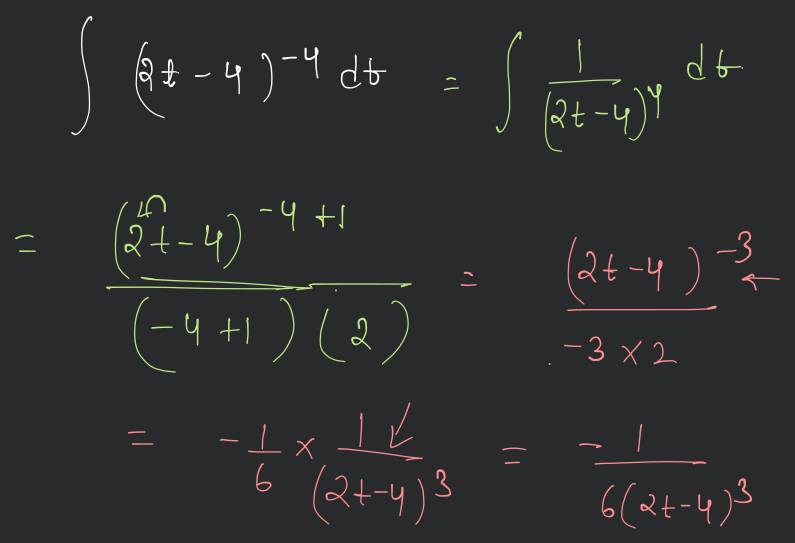 ∫ (2t - 4)^{-4} dt = ∫ \frac{1}{(2t-4)^4} dt
= \frac{(2t-4)^{-4+1}}{(-4+1)(2)} = \frac{(2t-4)^{-3}}{-3 × 2}
= -\frac{1}{6} × \frac{1}{(2t-4)^3} = -\frac{1}{6(2t-4)^3}